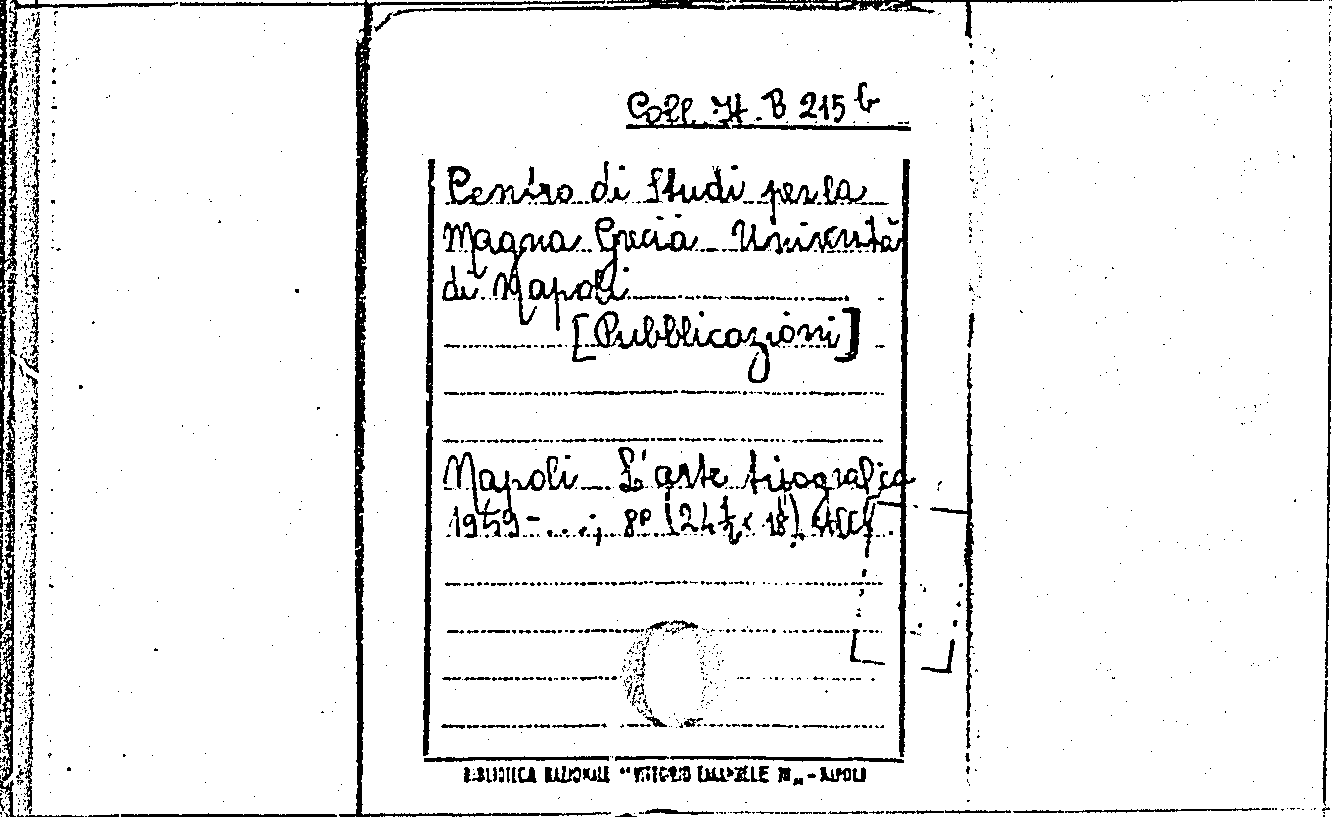 Coll. It. B 215 b
Centro di Studi per la
Magna Grecia - Università
di Napoli
[Pubblicazioni]
Napoli - L'arte tipografica
1959 - ...; 8º (24½ x 18).
BIBLIOTECA NAZIONALE "VITTORIO EMANUELE III" - NAPOLI